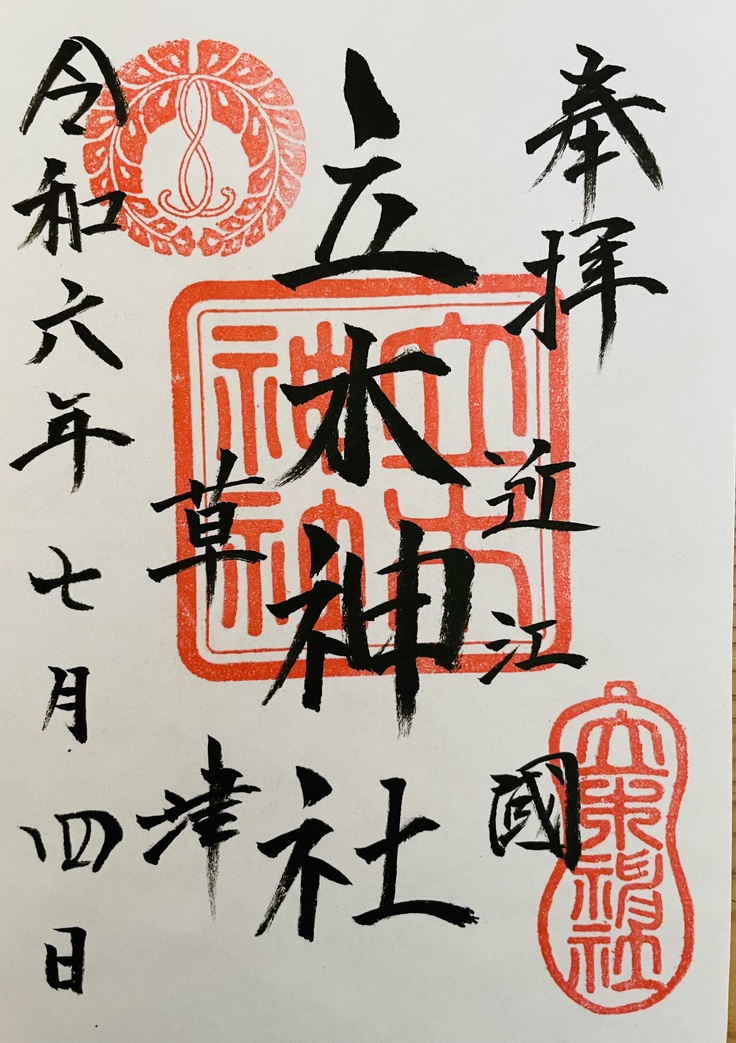 奉拝
近江國
立木神社
草津
令和六年七月四日
立木神社
立木神社